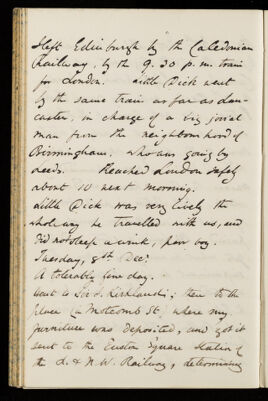 I left Edinburgh by the Caledonian
Railway, by the 9.30 p.m. train
for London. Little Dick went
by the same train as far as Lan-
caster, in charge of a big jovial
man from the neighbourhood of
Birmingham, who was going by
Leeds. Reached London safely
about 10 next morning.
Little Dick was very lively the
whole way he travelled with us, and
did not sleep a wink, poor boy.
Tuesday, 8th Dec:
A tolerably fine day.
Went to Sir J. Kirkland's; then to the
place in Motcomb St. where my
furniture was deposited, and got it
sent to the Euston Square station of
the L. & N.W. Railway, determining